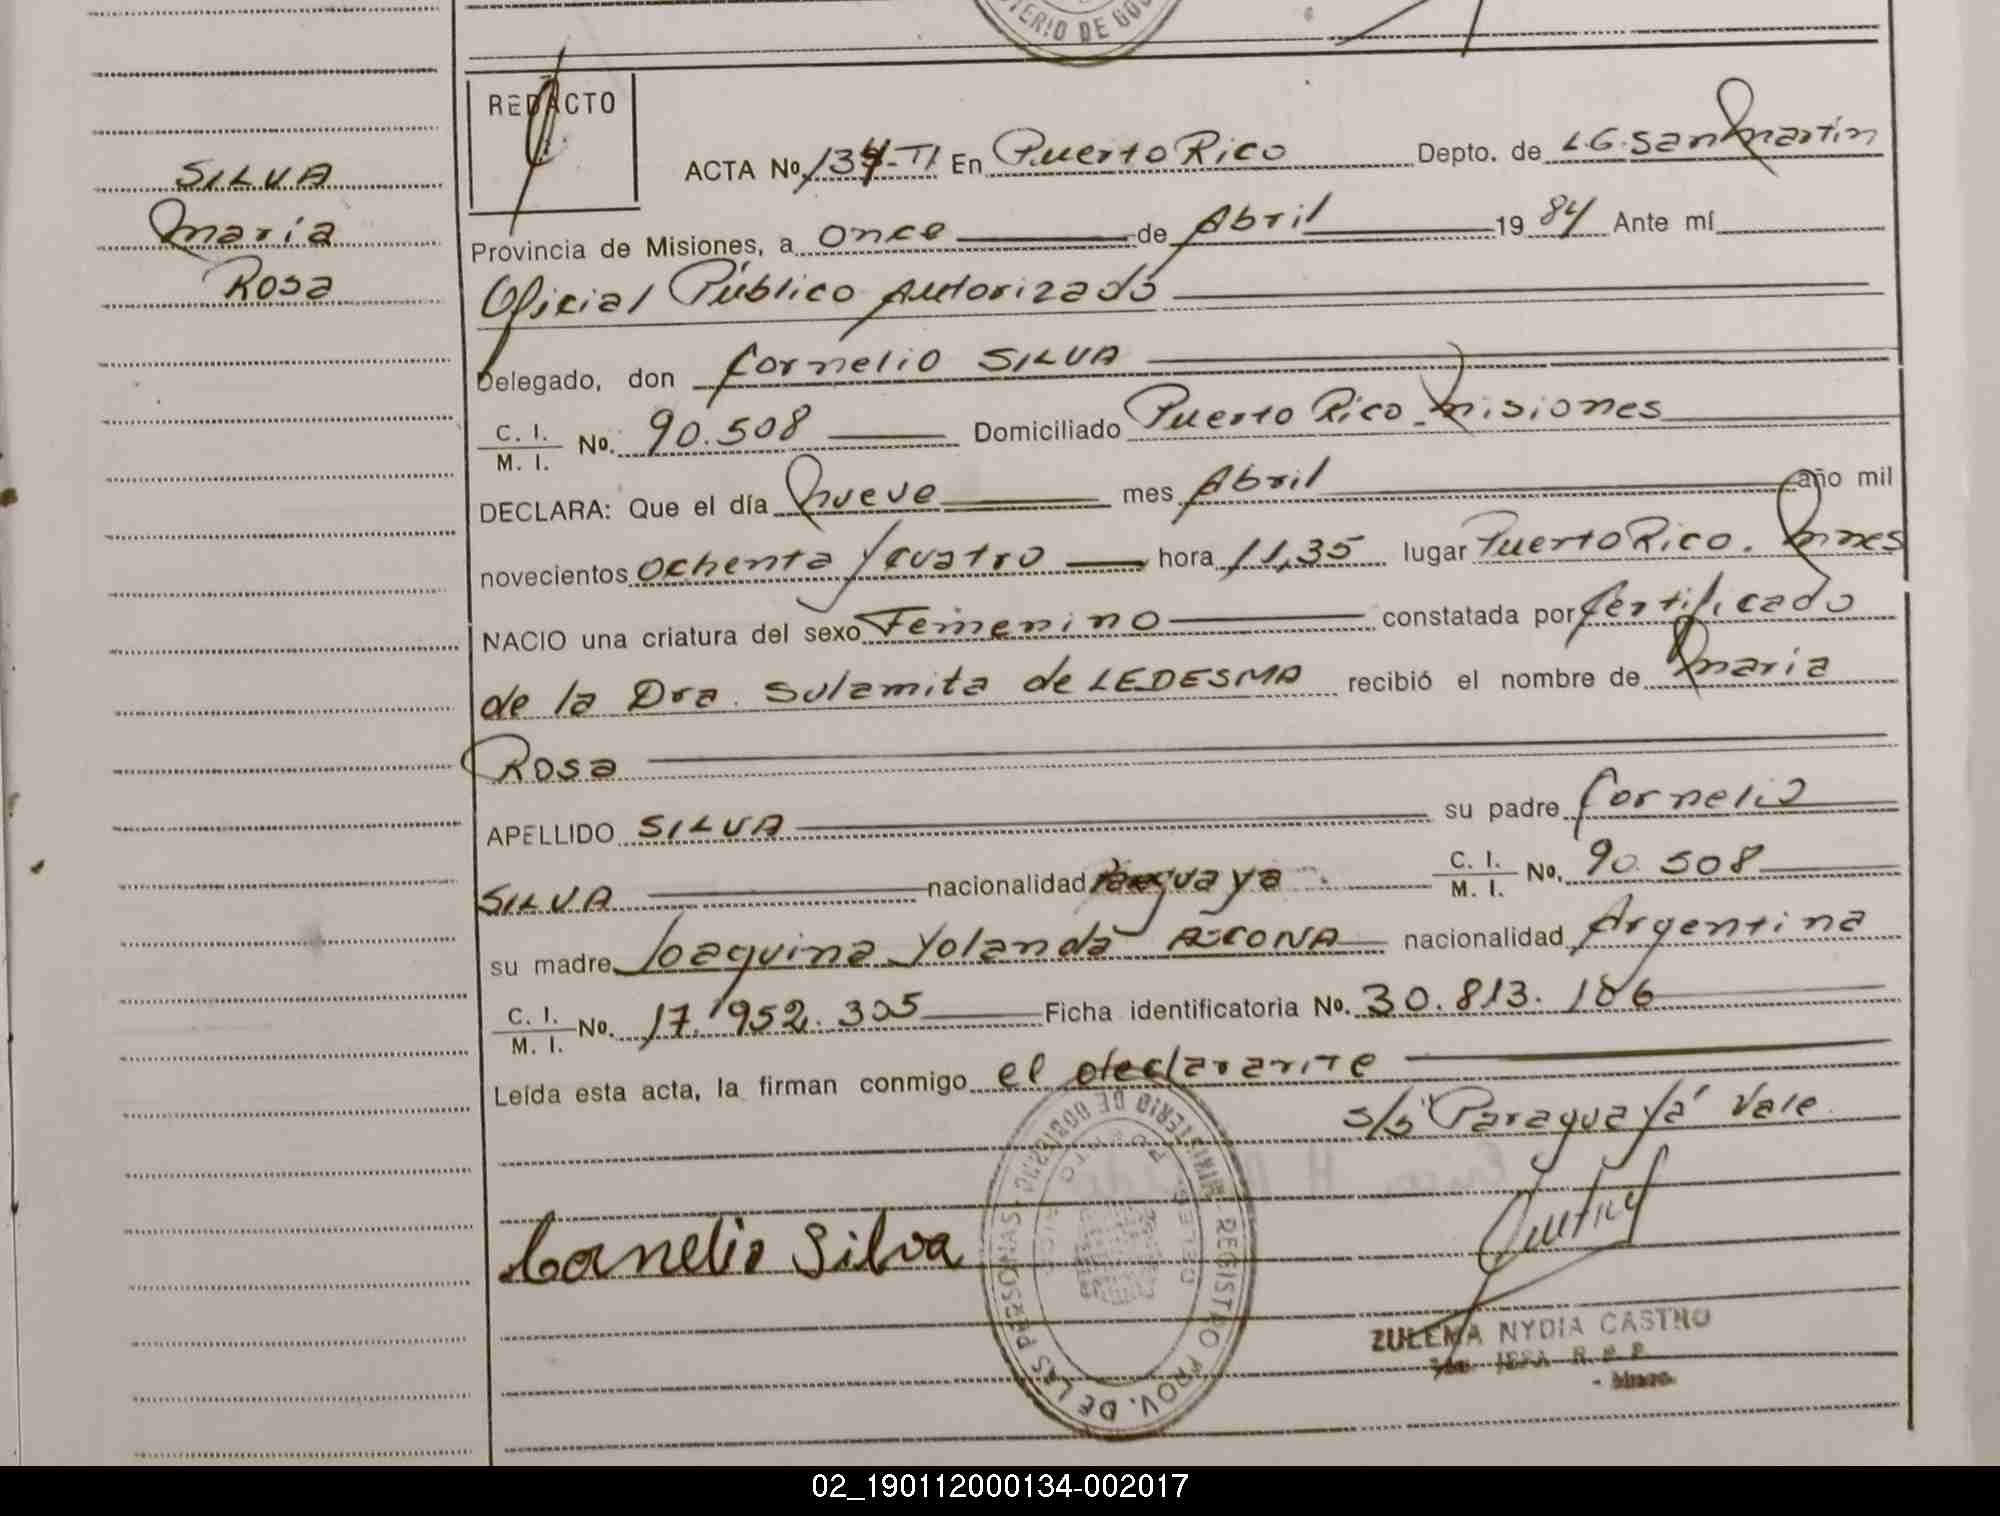 TERIO DE GOB
REDACTO
ACTA No. 134-TI En Puerto Rico Depto. de L.G. San Martín
SILVA
María
Rosa
Provincia de Misiones, a once de Abril 1984 Ante mí
Oficial Público Autorizado
Delegado, don Cornelio SILVA
C. I. / M. I. No. 90.508 Domiciliado Puerto Rico - Misiones
DECLARA: Que el día nueve mes Abril año mil
novecientos ochenta y cuatro hora 11,35 lugar Puerto Rico. Mnes
NACIO una criatura del sexo Femenino constatada por Certificado
de la Dra. Sulamita de LEDESMA recibió el nombre de María
Rosa
APELLIDO SILVA su padre Cornelio
SILVA nacionalidad Paraguaya C. I. / M. I. No. 90.508
su madre Joaquina Yolanda AZCONA nacionalidad Argentina
C. I. / M. I. No. 17.952.305 Ficha identificatoria No. 30.813.106
Leída esta acta, la firman conmigo el declarante
s/b "Paraguaya" Vale
Cornelio Silva
MINISTERIO DE GOBIERNO REGISTRO PROV. DE LAS PERSONAS
ZULEMA NYDIA CASTRO
02_190112000134-002017